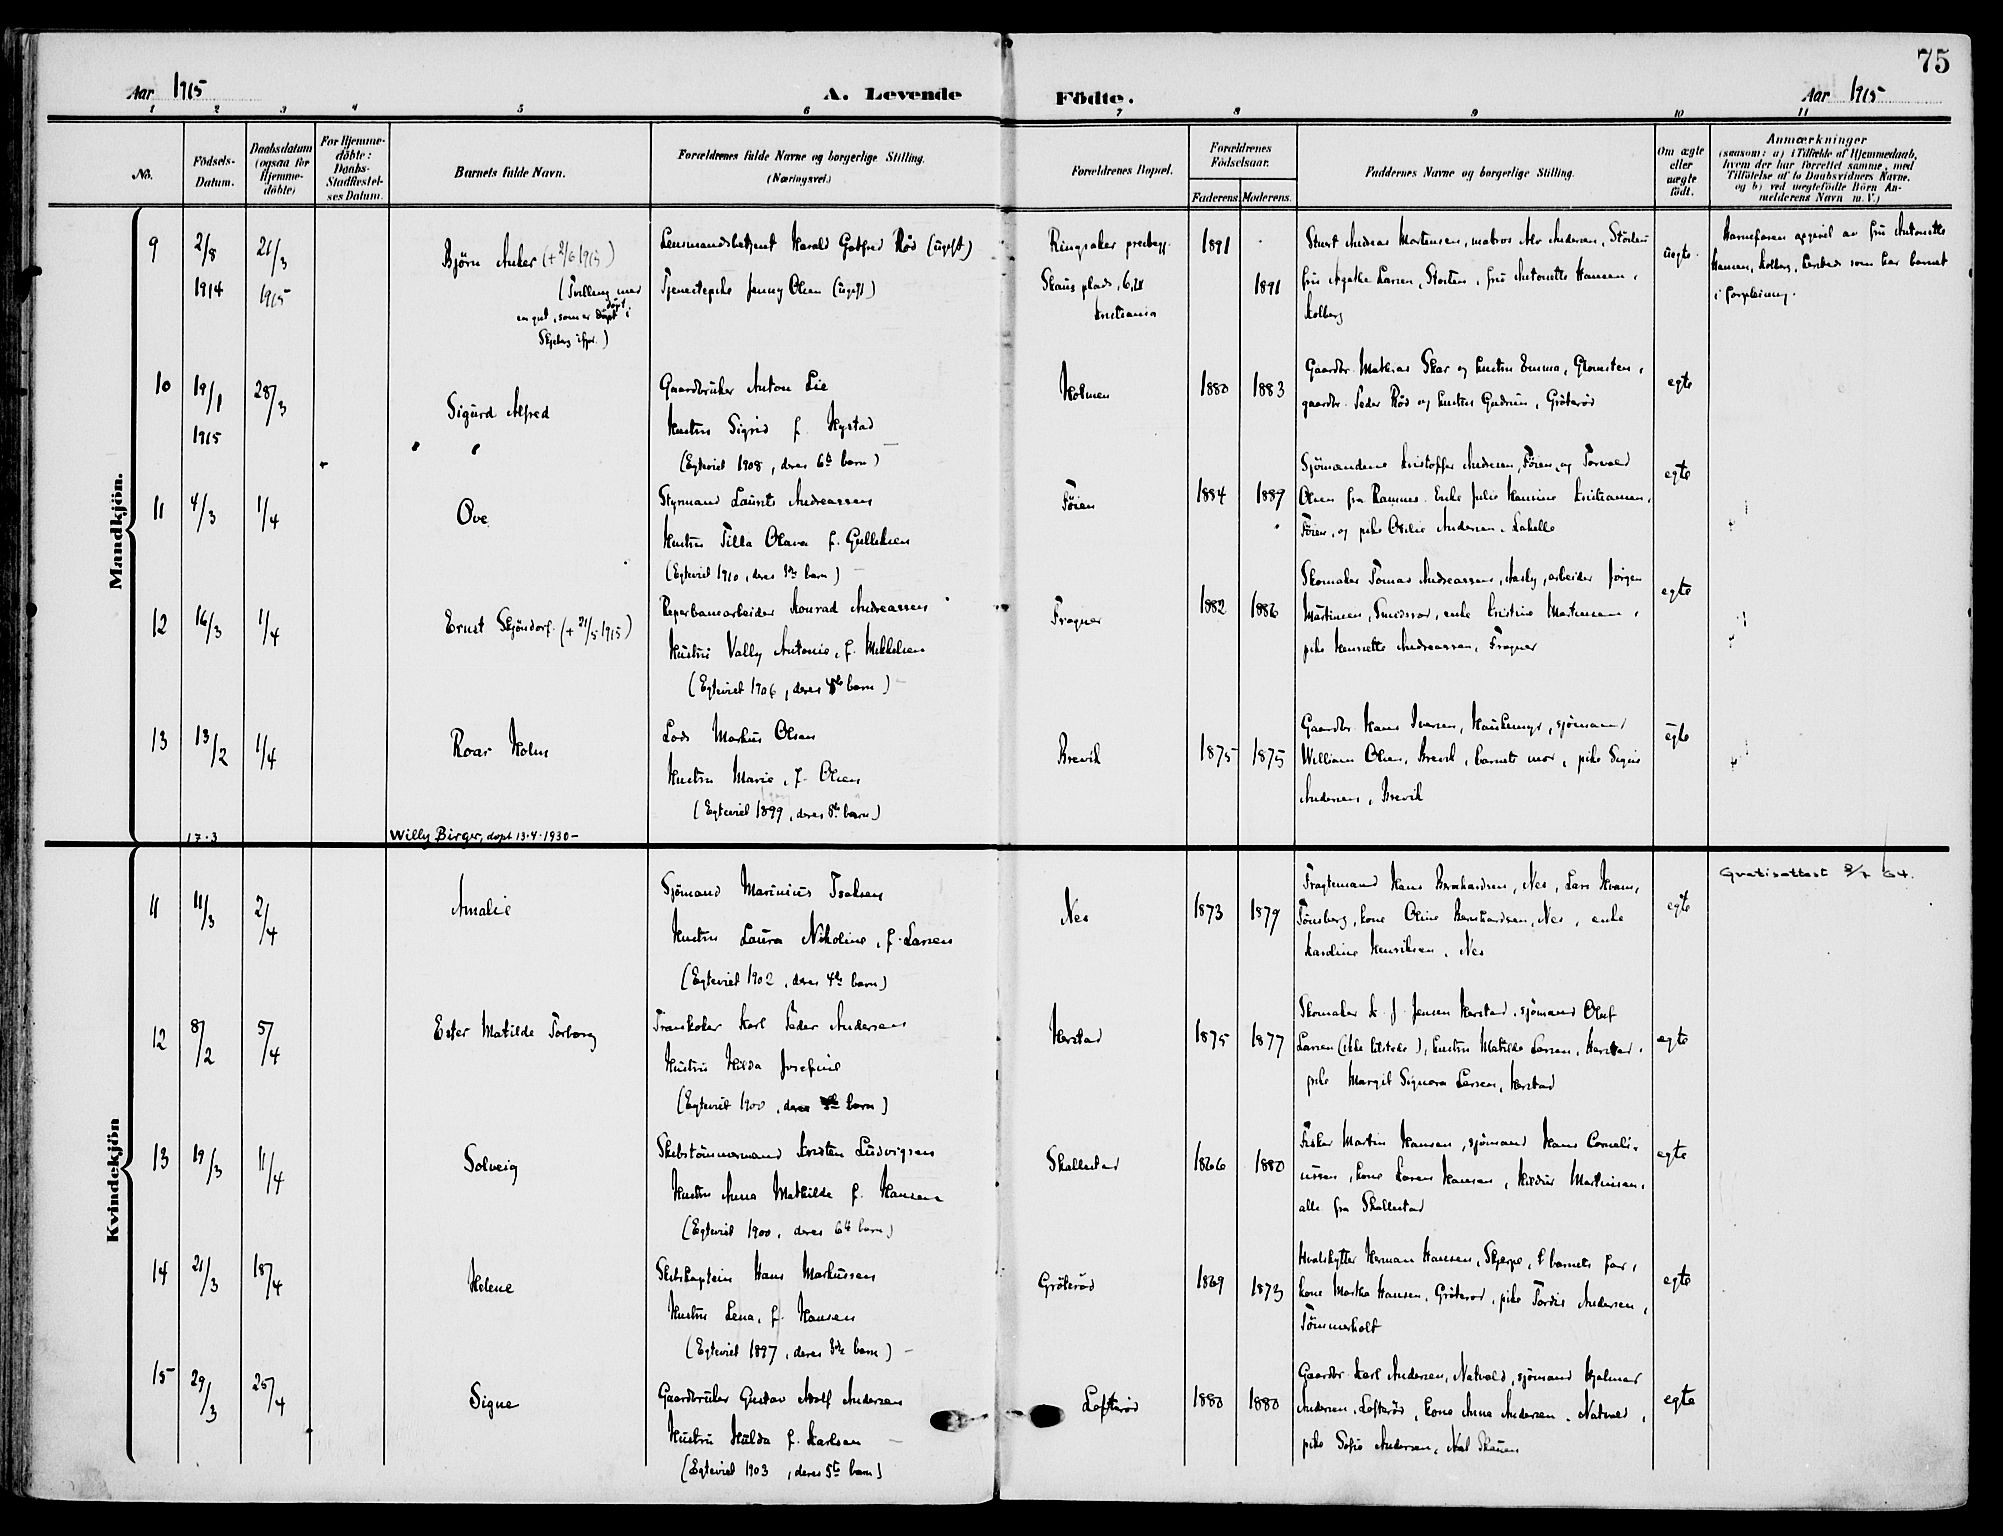 75
Aar 1915
A. Levende Födte.
Aar 1915
1 2 3 4 5 6 7 8 9 10 11
No.
Födsels-
Datum.
Daabsdatum
(ogsaa for
Hjemme-
döbte)
For Hjemme-
döbte:
Daabs-
Stadfæstel-
ses Datum.
Barnets fulde Navn.
Forældrenes fulde Navne og borgerlige Stilling.
(Næringsvei.)
Forældrenes Bopæl.
Forældrenes
Födselsaar.
Faderens. Moderens.
Faddernes Navne og borgerlige Stilling.
Om ægte
eller
uægte
födt.
Anmærkninger
(saasom: a) i Tilfælde af Hjemmedaab,
hvem der har forrettet samme, med
Tilföielse af to Daabsvidners Navne,
og b) ved uægtefödte Börn An-
melderens Navn m. V.)
Mandkjön.
9
2/8
1914
21/3
1915
Björn Anker (+ 2/6 1915)
(Tvilling med
en gut, som er döpt i
Skjeberg )
Lensmandsbetjent Harald Gotfred Röd (ugift)
Tjenestepike Jenny Olsen (ugift)
Ringsaker prestegj.
Skaus plads, 6,
Kristiania
1891
1891
Stuert Andreas Mortensen, matros Alv Andersen, Storten
fru Agathe Larsen, Storten, fru Antonette Hansen,
Kolberg
uegte
Barnefaren opgivet av fru Antonette
Hansen, Kolberg, som har barnet
i forpleining.
10
19/1
1915
28/3
Sigurd Alfred
Gaardbruker Anton Lie
Hustru Sigrid f. Hystad
(Egteviet 1908, deres 6te barn)
Holmen
1880
1883
Gaardbr. Mathias Skar og hustru Emma, Glomsten,
gaardbr. Peder Röd og hustru Gudrun, Gröteröd
egte
11
4/3
1/4
Ove
Styrmand Laurits Andreassen
Hustru Tilla Olava f. Gulliksen
(Egteviet 1910, deres 3die barn)
Föien
1884
1887
Sjömændene Kristoffer Andersen, Föien, og Torvald
Olsen fra Ramnes. Enke Julie Hansine Kristiansen,
Föien, og pike Otilie Andersen, Lahelle
egte
12
16/3
1/4
Ernst Skjöndorf. (+ 21/5 1915)
Reperbanearbeider Konrad Andreassen
Hustru Vally Antonie, f. Mikkelsen
(Egteviet 1906, deres 4de barn)
Fragner
1882
1886
Skomaker Tomas Andreassen, Aasly, arbeider Jörgen
Martinsen, Smidsröd, enke Kristine Martinsen,
pike Henriette Andreassen, Fragner
egte
13
13/2
1/4
Roar Holm
Lods Markus Olsen
Hustru Marie, f. Olsen
(Egteviet 1899, deres 8de barn)
Brevik
1875
1875
Gaardbr. Hans Iversen, Haukemyr, sjömand
William Olsen, Brevik, barnets mor, pike Signe
Andersen, Brevik
egte
17.3
Willy Birger, døpt 13.4.1930 –
Kvindekjön
11
11/3
2/4
Amalie
Sjömand Marinius Isaksen
Hustru Laura Nikoline, f. Larsen
(Egteviet 1902, deres 4de barn)
Nes
1873
1879
Fragtemand Hans Bernhardsen, Nes, Lars Kvam,
Tönsberg, kone Oline Bernhardsen, Nes, enke
Karoline Henriksen, Nes
egte
Gratisattest 8/7 64.
12
8/2
5/4
Ester Matilde Torborg
Trankoker Karl Peder Andersen
Hustru Hilda Josefine
(Egteviet 1900, deres barn)
Herstad
1875
1877
Skomaker K. J. Jensen Herstad, sjömand Oluf
Larsen (ikke tilstede), hustru Matilde Larsen, Herstad,
pike Margit Signora Larsen, Herstad
egte
13
19/3
11/4
Solveig
Skibstömmermand Kristen Ludvigsen
Hustru Anna Mathilde f. Hansen
(Egteviet 1900, deres 6te barn)
Skallestad
1866
1880
Fisker Martin Hansen, sjömand Hans Corneli-
ussen, kone Laren Hansen, Hildur Martinsen,
alle fra Skallestad
egte
14
21/3
18/4
Helene
Skibskaptein Hans Markussen
Hustru Lena, f. Hansen
(Egteviet 1897, deres 3die barn)
Gröteröd
1869
1873
Hvalskytter Herman Hansen, Skjerpe, & barnets far,
kone Martha Hansen, Gröteröd, pike Tordis Andersen,
Tömmerholt
egte
15
29/3
25/4
Signe
Gaardbruker Gustav Adolf Andersen
Hustru Hulda f. Karlsen
(Egteviet 1903, deres 5te barn)
Lofteröd
1880
1880
Gaardbr. Karl Andersen, Natvold, sjömand Hjalmar
Andersen, Lofteröd, kone Anna Andersen, Natvold,
pike Sofie Andersen, Skauen
egte